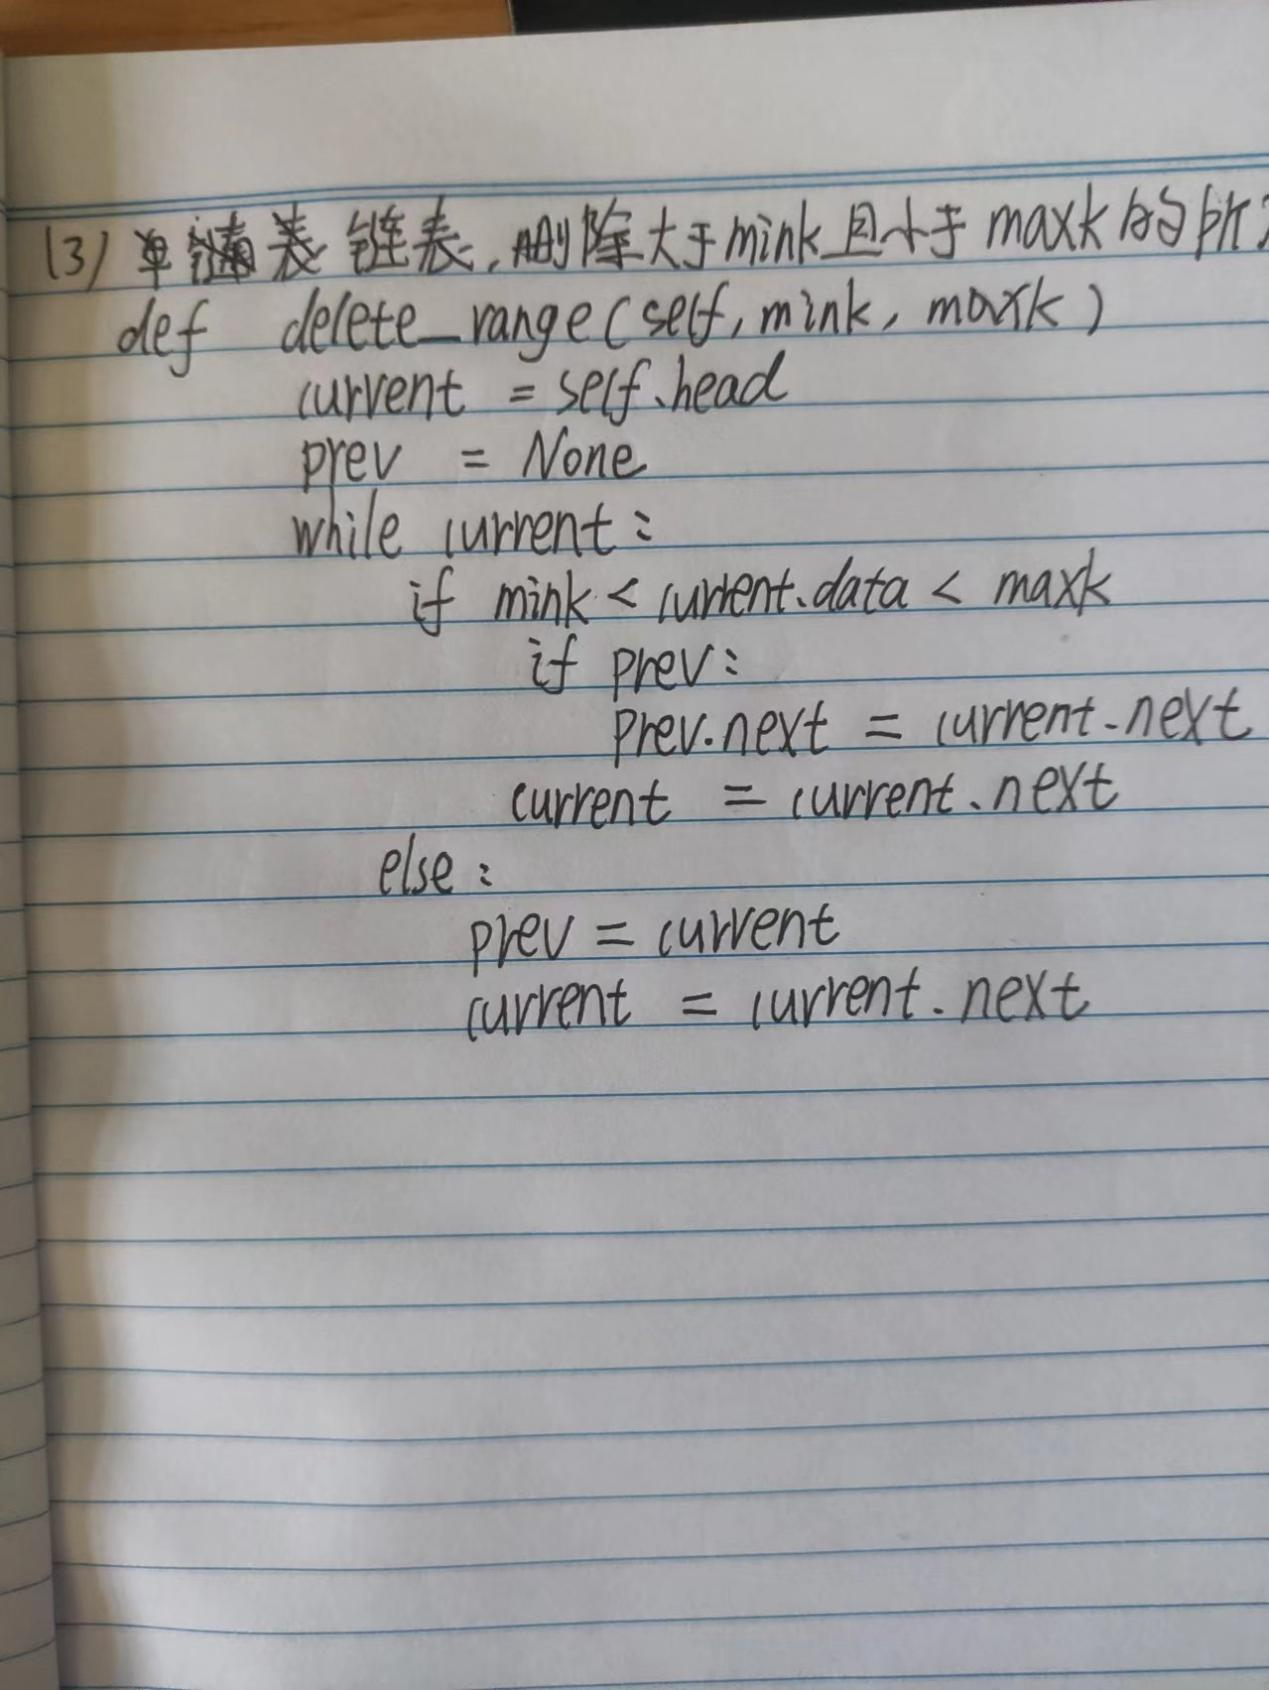 (3) 单链表 链表，删除大于mink且小于maxk的所
def delete_range(self, mink, maxk)
current = self.head
prev = None
while current:
if mink < current.data < maxk
if prev:
prev.next = current.next
current = current.next
else:
prev = current
current = current.next